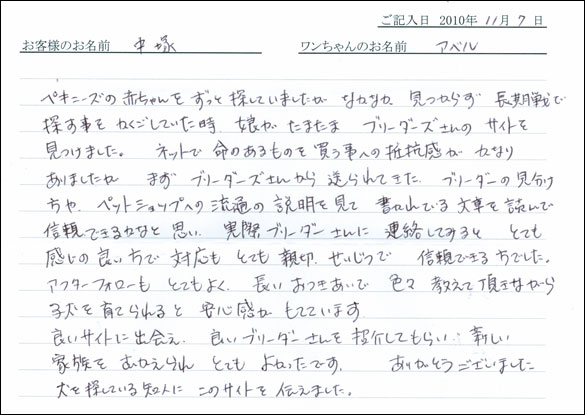 ご記入日 2010年 11月 7日
お客様のお名前 中塚 ワンちゃんのお名前 アベル
ペキニーズの赤ちゃんをずっと探していましたが なかなか 見つからず 長期戦で
探す事を かくごしていた時 娘が たまたま ブリーダーズさんの サイトを
見つけました。 ネットで 命のあるものを 買う事への 抵抗感が かなり
ありましたが まず ブリーダーズさんから 送られてきた ブリーダーの見分け
方や、ペットショップへの 流通の 説明を 見て 書かれている 文章を 読んで
信頼できるかなと 思い、実際ブリーダーさんに 連絡してみると とても
感じの良い方で 対応も とても 親切、せいじつで 信頼できる方でした。
アフターフォローも とてもよく、長い おつきあいで 色々 教えて 頂きながら
子犬を育てられると 安心感が もてています
良いサイトに出会え、良いブリーダーさんを 紹介してもらい、新しい
家族を むかえられ とても よかったです。 ありがとうございました
犬を探している知人に このサイトを 伝えました。